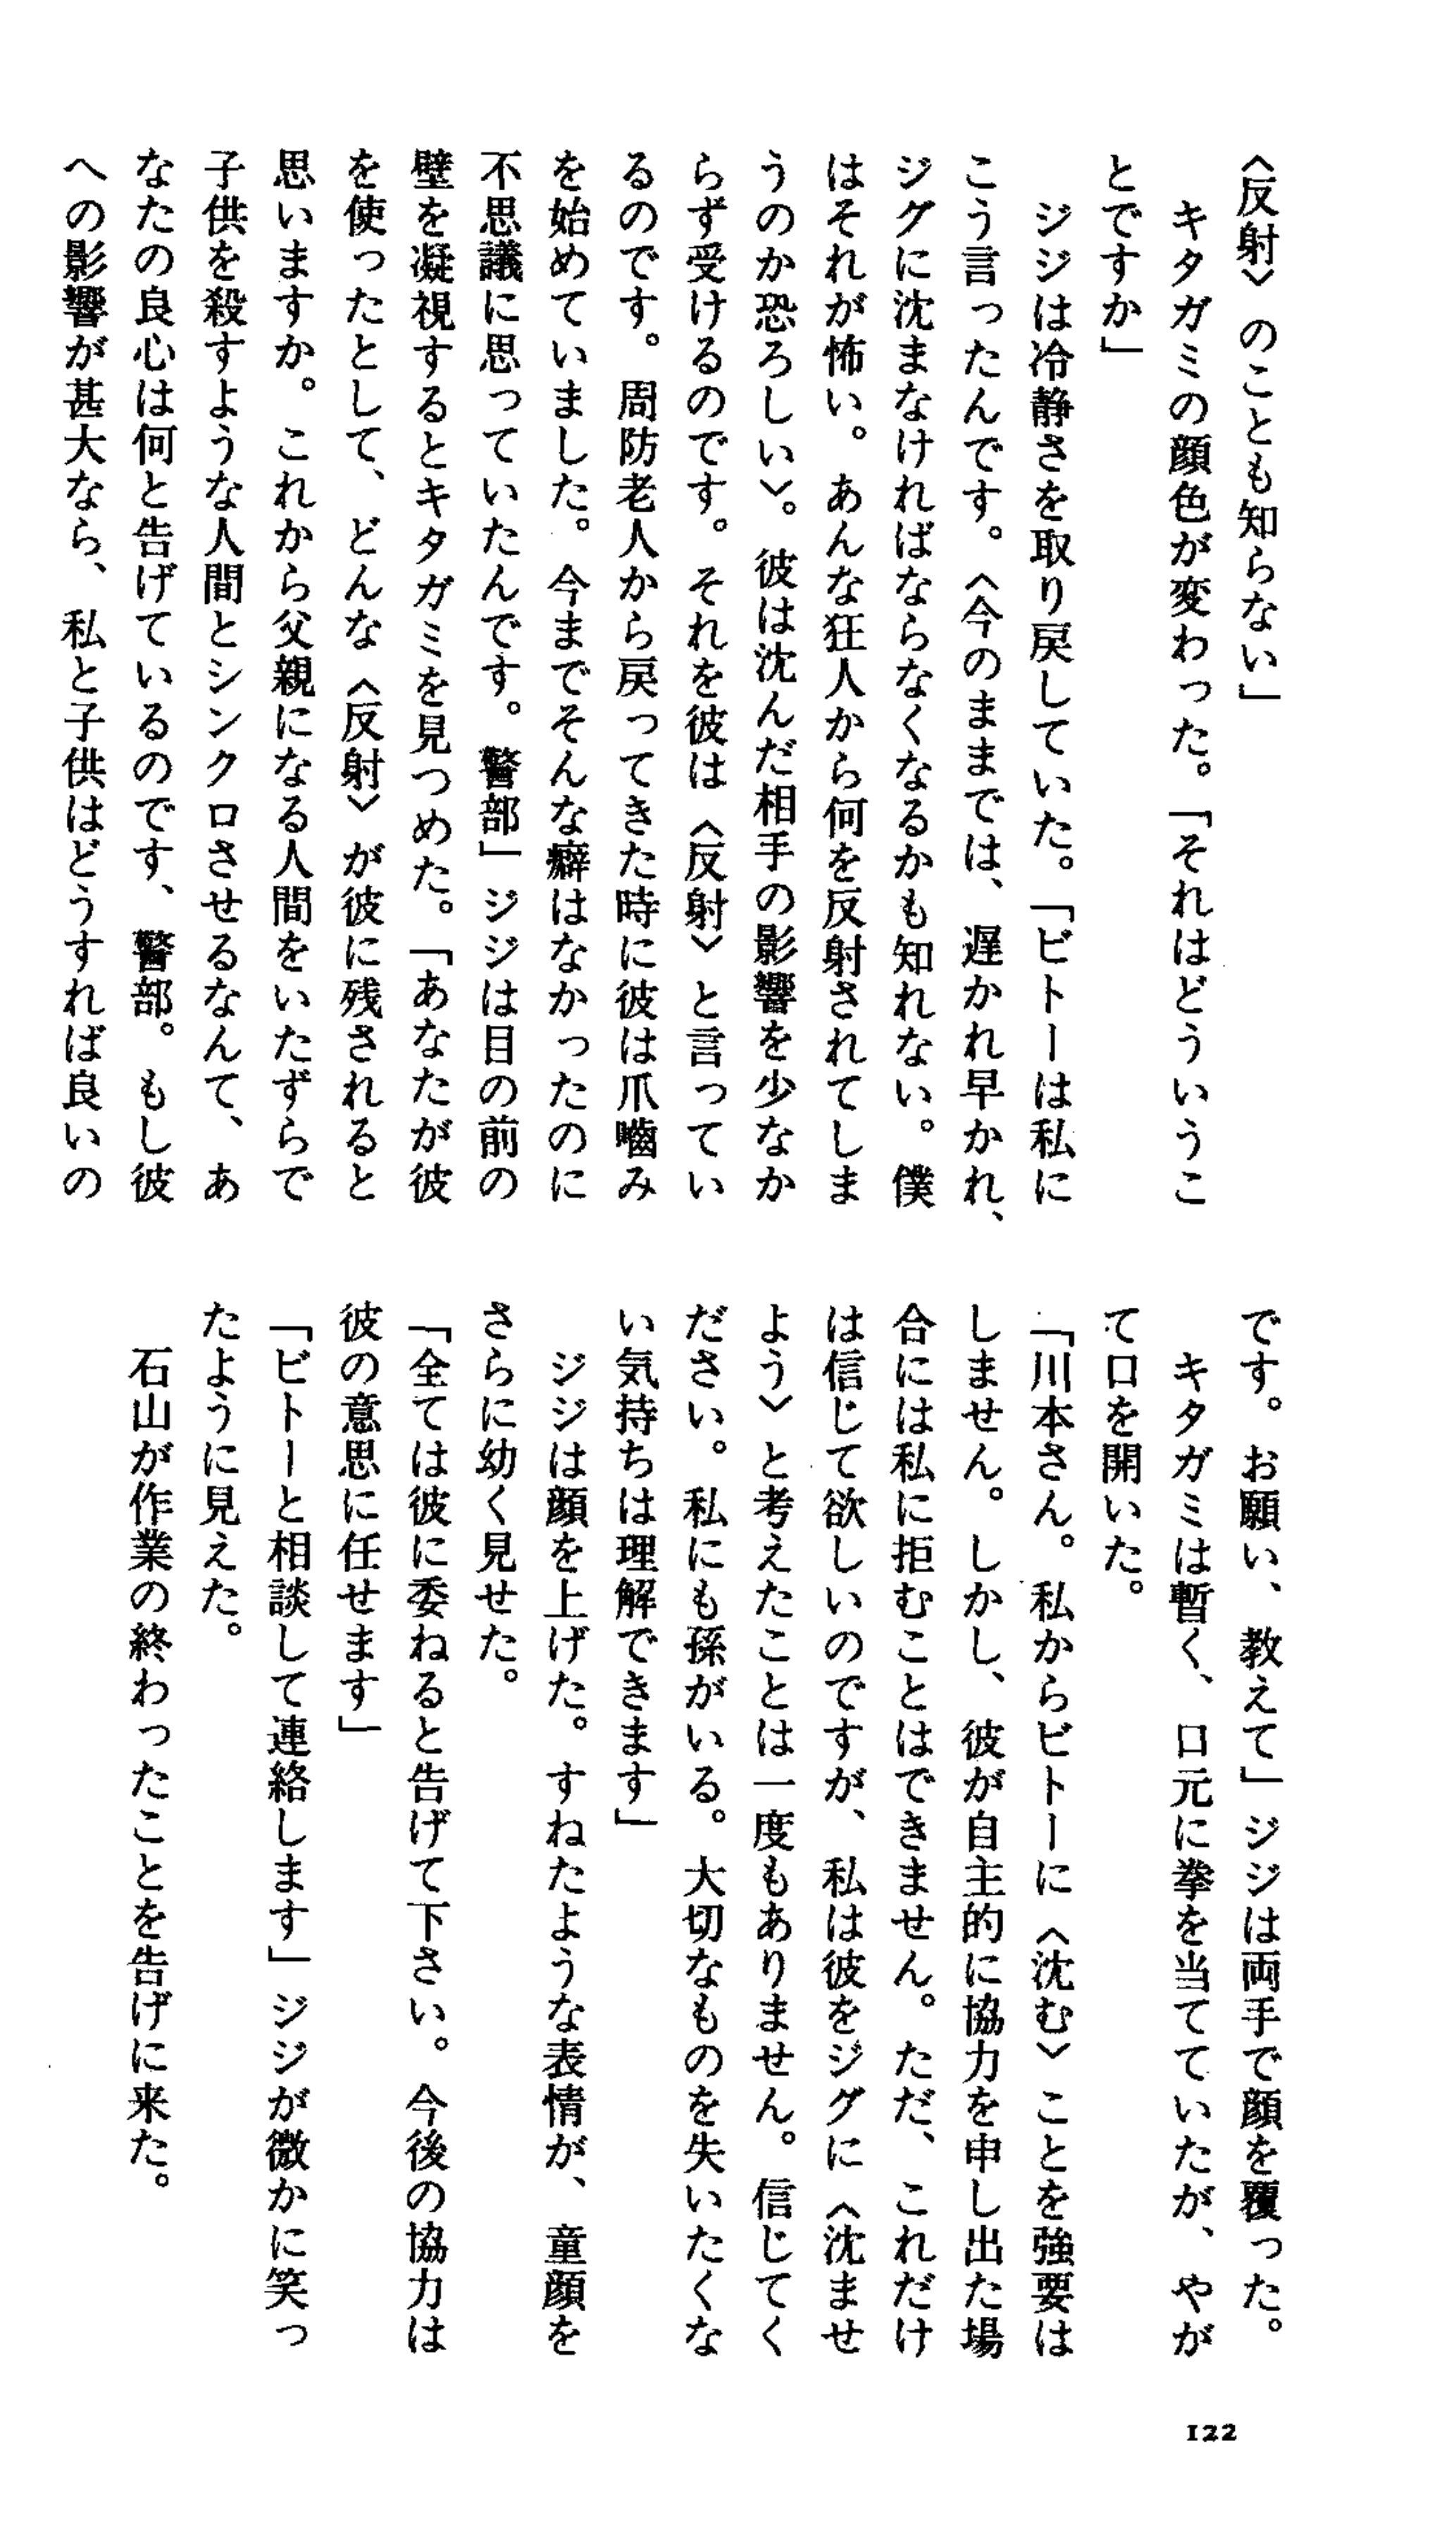 〈反射〉のことも知らない」
　キタガミの顔色が変わった。「それはどういうこ
とですか」
　ジジは冷静さを取り戻していた。「ビトーは私に
こう言ったんです。〈今のままでは、遅かれ早かれ、
ジグに沈まなければならなくなるかも知れない。僕
はそれが怖い。あんな狂人から何を反射されてしま
うのか恐ろしい〉。彼は沈んだ相手の影響を少なか
らず受けるのです。それを彼は〈反射〉と言ってい
るのです。周防老人から戻ってきた時に彼は爪嚙み
を始めていました。今までそんな癖はなかったのに
不思議に思っていたんです。警部」ジジは目の前の
壁を凝視するとキタガミを見つめた。「あなたが彼
を使ったとして、どんな〈反射〉が彼に残されると
思いますか。これから父親になる人間をいたずらで
子供を殺すような人間とシンクロさせるなんて、あ
なたの良心は何と告げているのです、警部。もし彼
への影響が甚大なら、私と子供はどうすれば良いの
です。お願い、教えて」ジジは両手で顔を覆った。
　キタガミは暫く、口元に拳を当てていたが、やが
て口を開いた。
「川本さん。私からビトーに〈沈む〉ことを強要は
しません。しかし、彼が自主的に協力を申し出た場
合には私に拒むことはできません。ただ、これだけ
は信じて欲しいのですが、私は彼をジグに〈沈ませ
よう〉と考えたことは一度もありません。信じてく
ださい。私にも孫がいる。大切なものを失いたくな
い気持ちは理解できます」
　ジジは顔を上げた。すねたような表情が、童顔を
さらに幼く見せた。
「全ては彼に委ねると告げて下さい。今後の協力は
彼の意思に任せます」
「ビトーと相談して連絡します」ジジが微かに笑っ
たように見えた。
　石山が作業の終わったことを告げに来た。
122